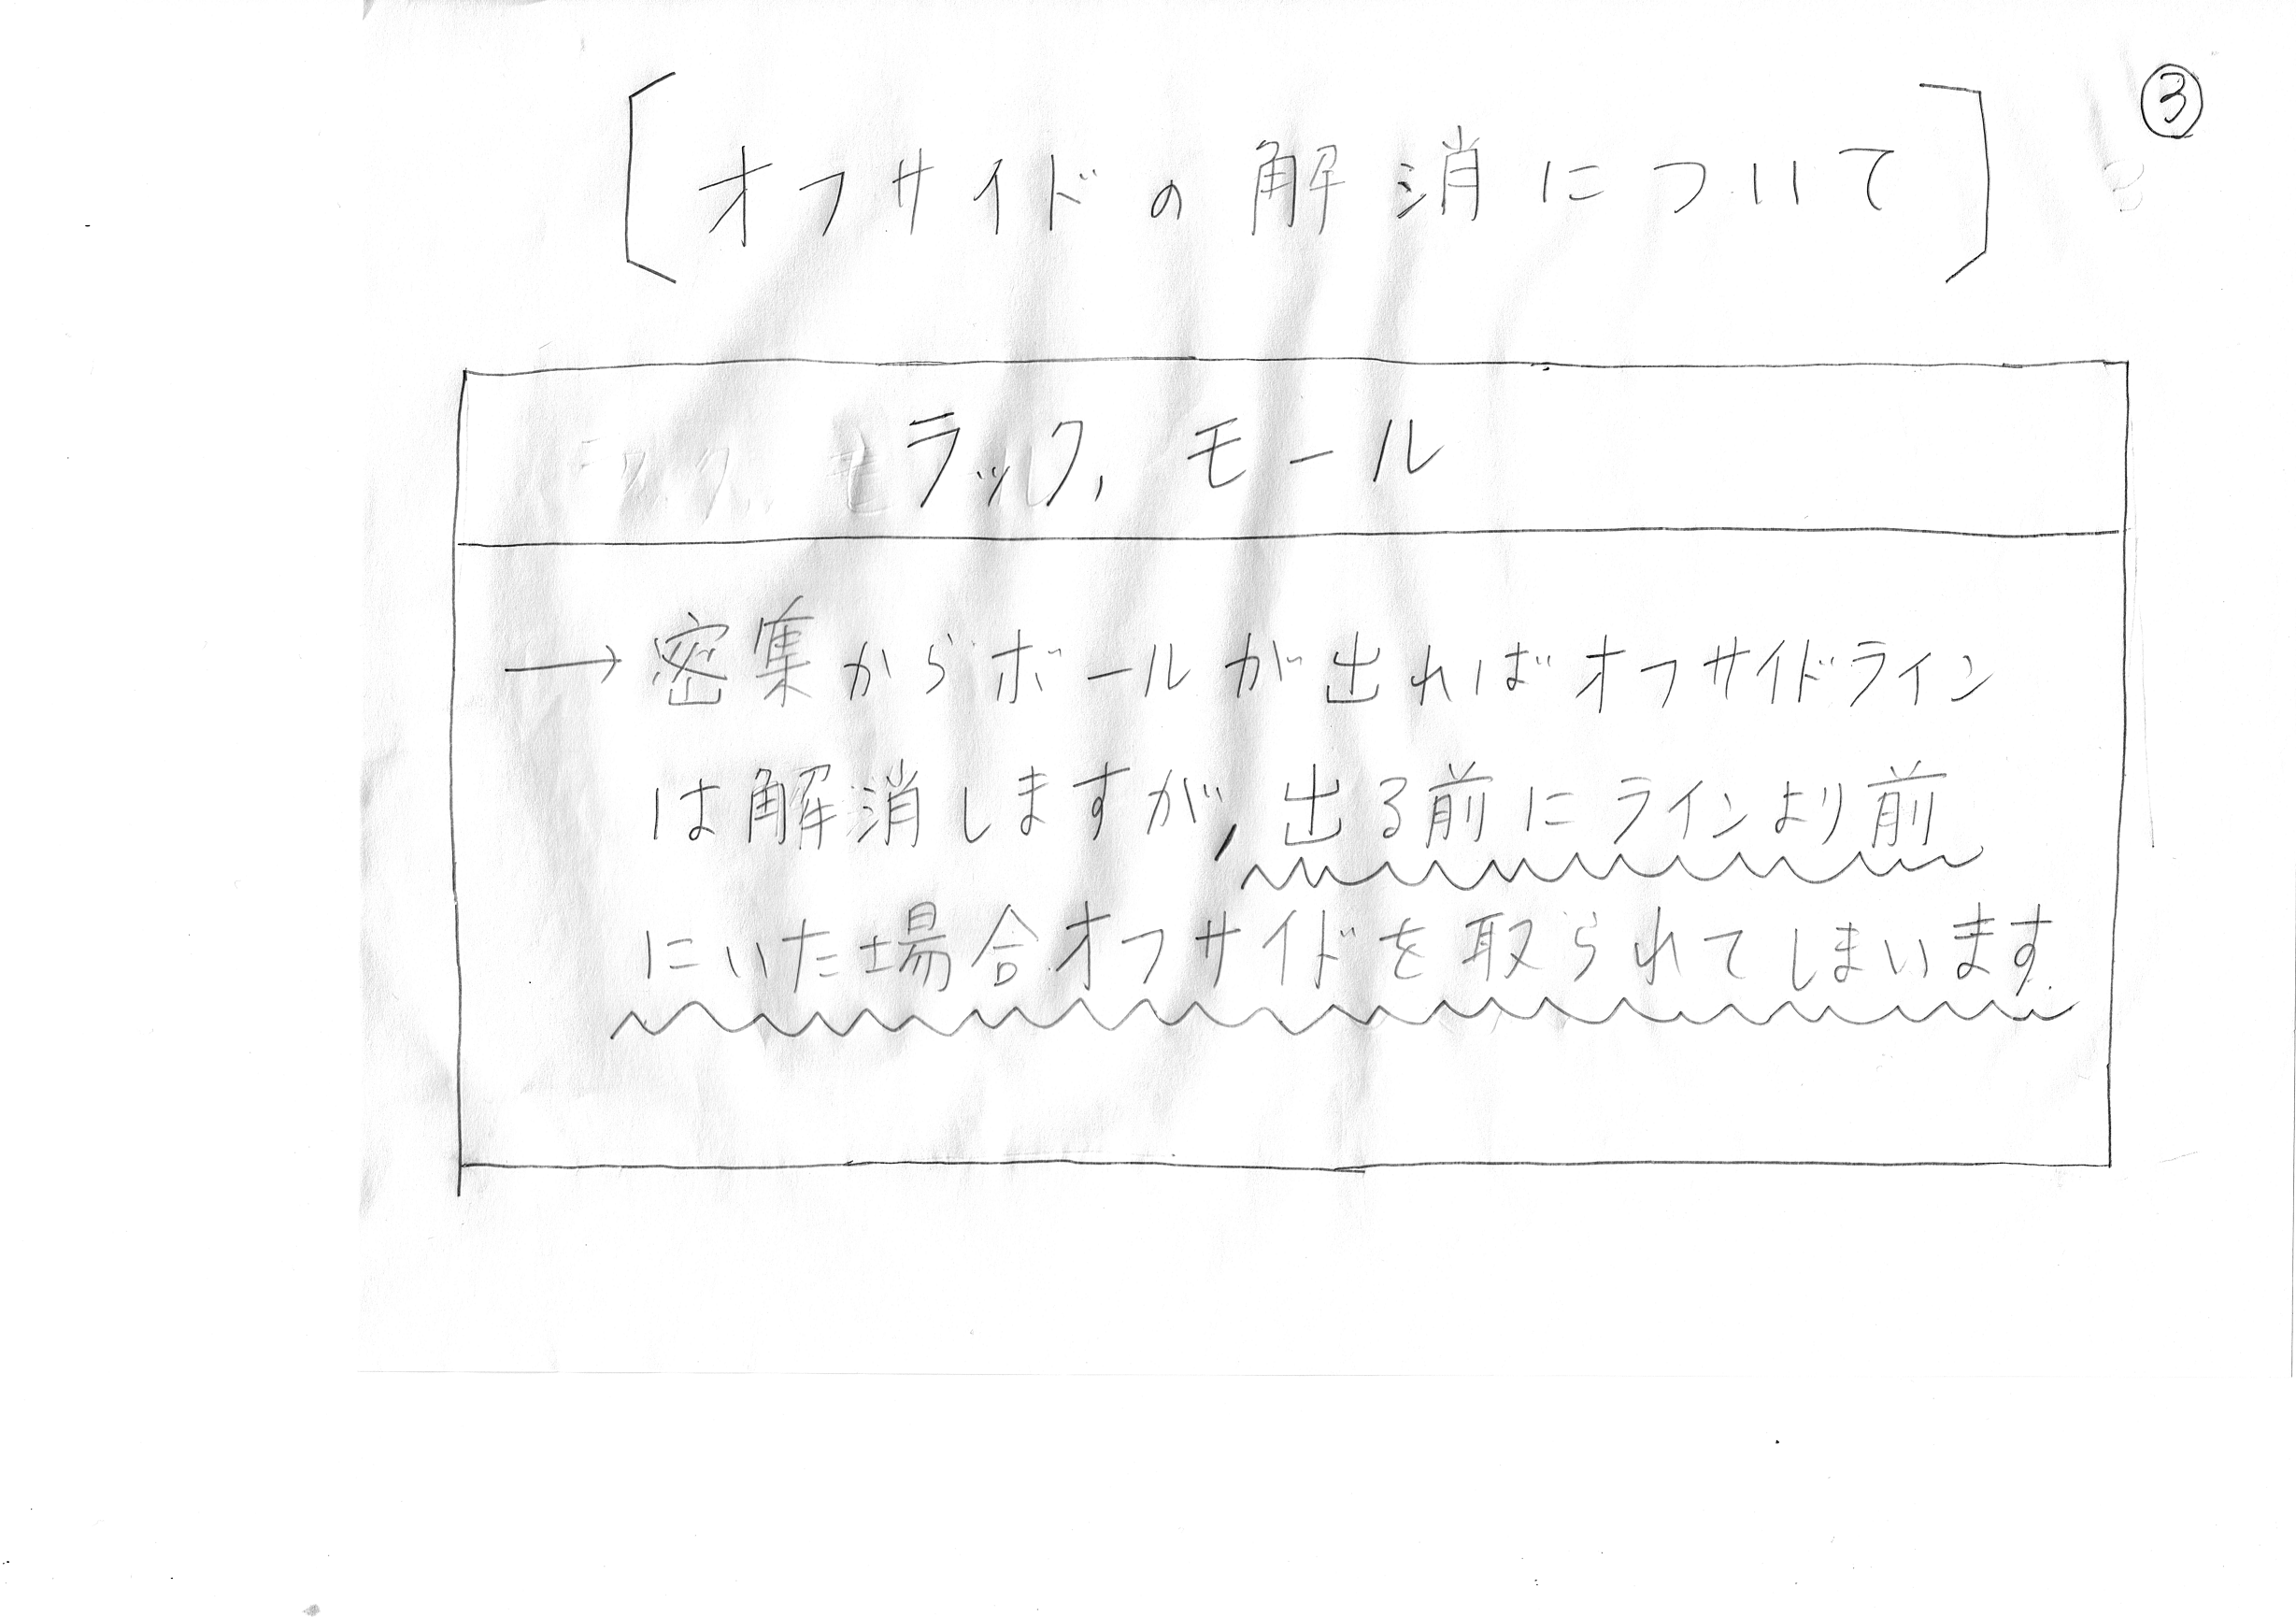 ③
[オフサイドの解消について]
ラック, モール
→密集からボールが出ればオフサイドライン
は解消しますが, 出る前にラインより前
にいた場合オフサイドを取られてしまいます.